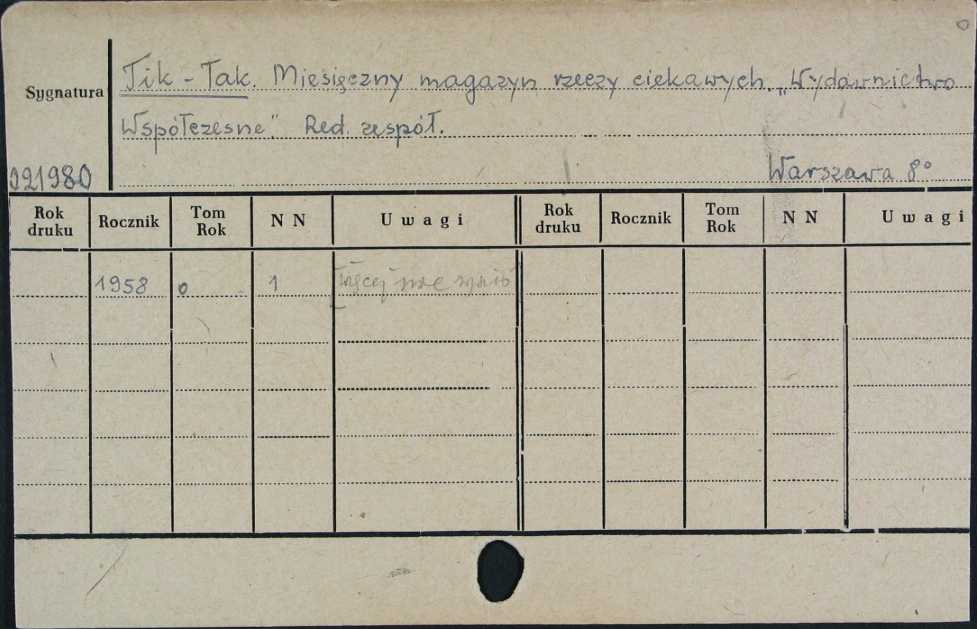 Sygnatura
Tik-Tak. Miesięczny magazyn rzeczy ciekawych. „Wydawnictwo
Współczesne”. Red. zespół.
921980
Warszawa 8°
Rok druku Rocznik Tom Rok NN Uwagi Rok druku Rocznik Tom Rok NN Uwagi
1958 0 1 [więcej nie